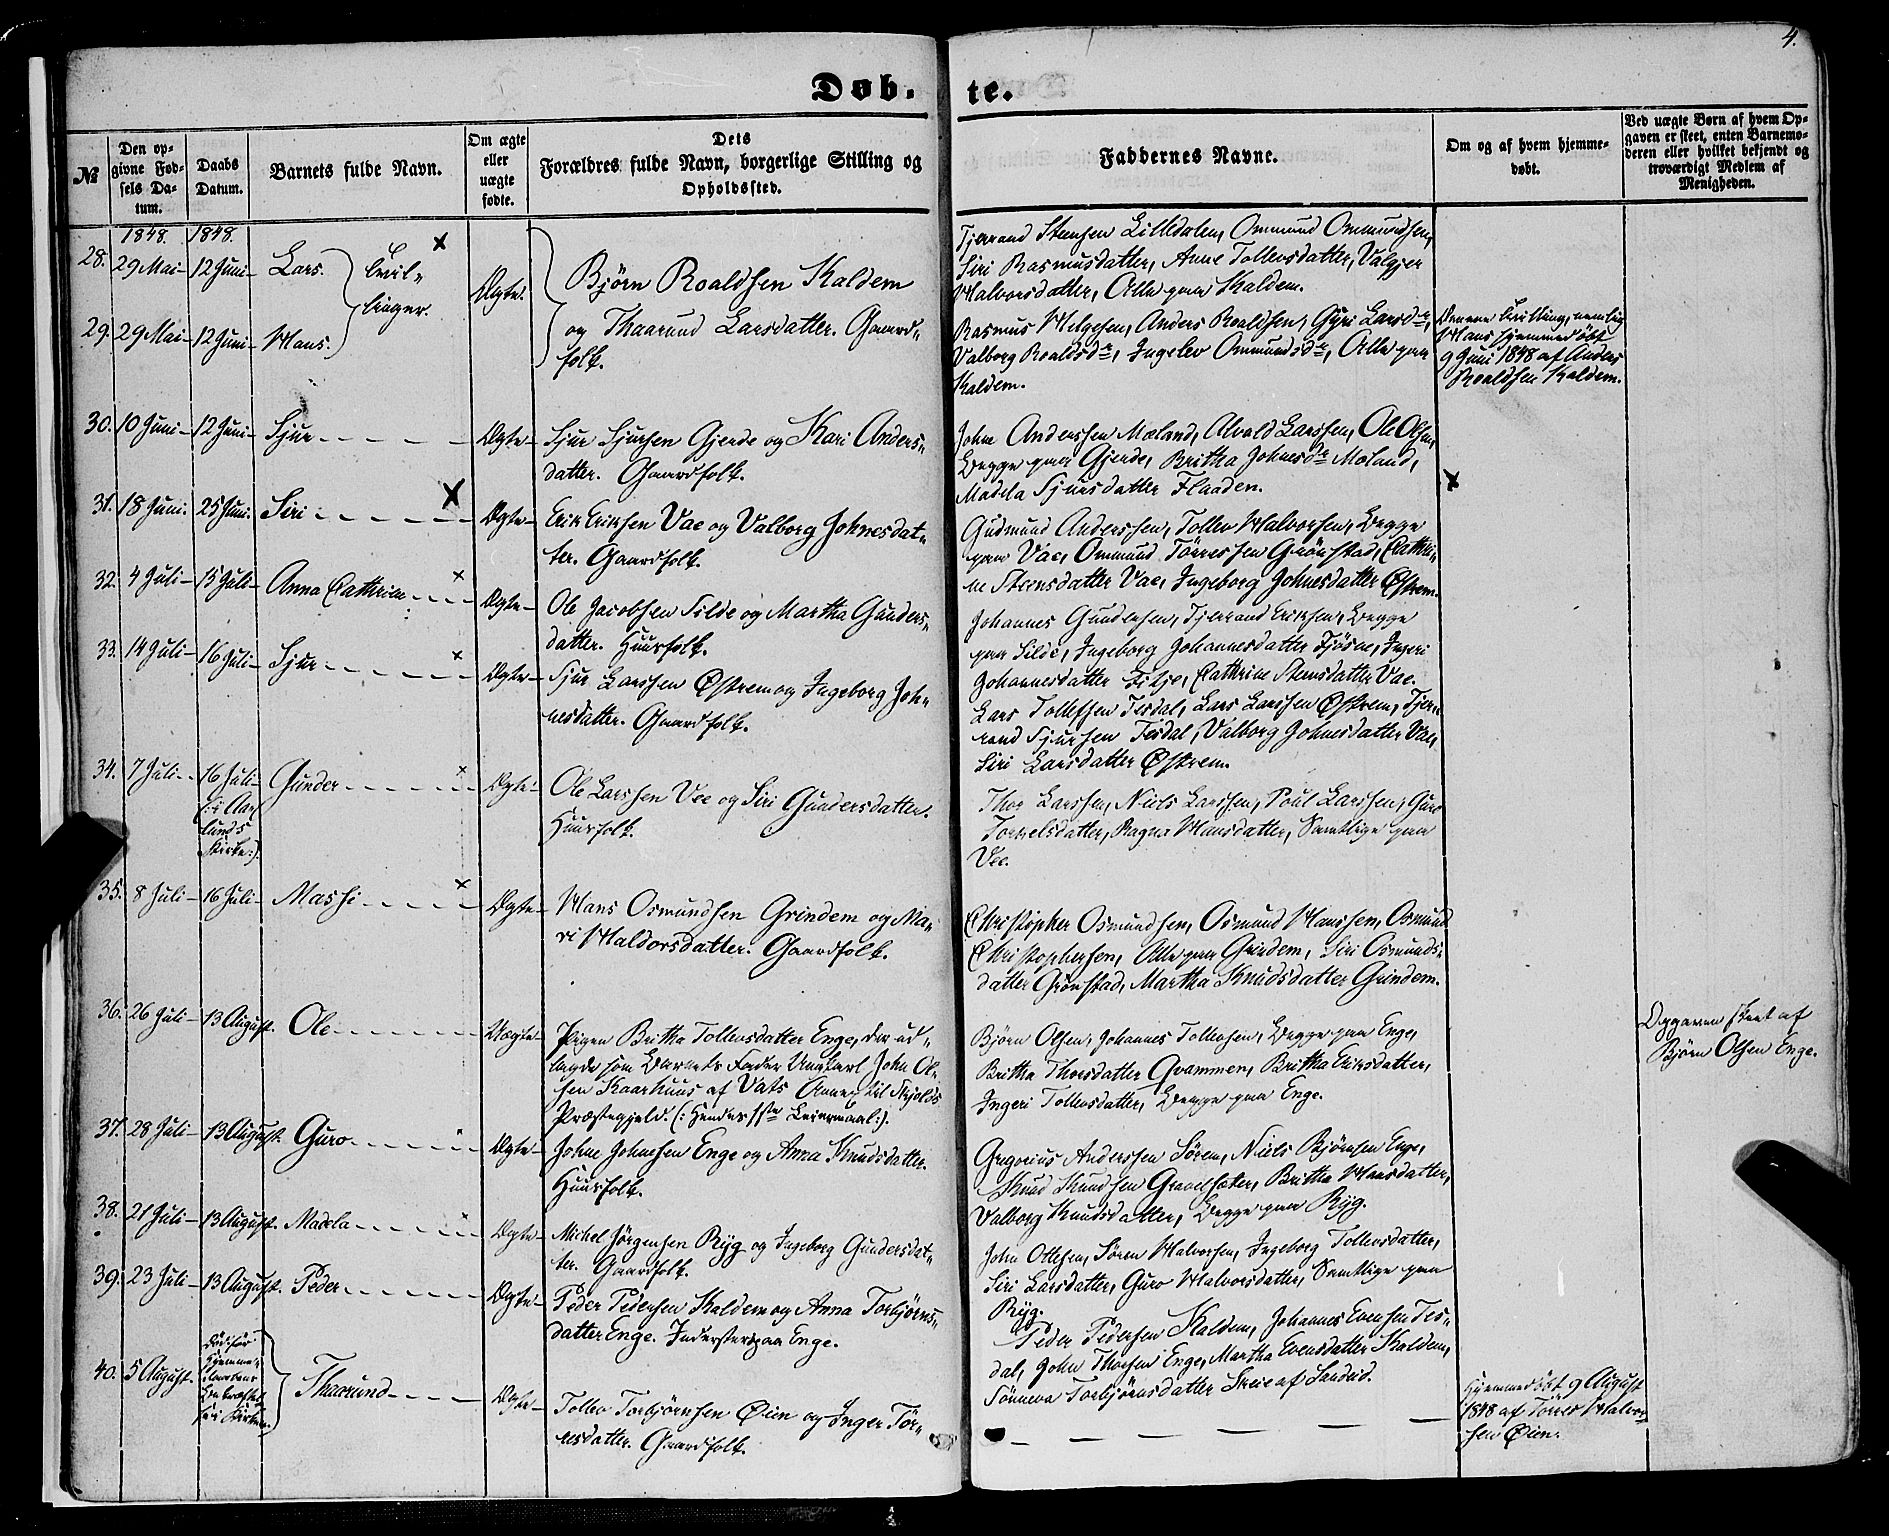 4.
Døb-te.
№
Den op-
givne Fød-
sels Da-
tum.
Daabs
Datum.
Barnets fulde Navn.
Om ægte
eller
uægte
fødte.
Dets
Forældres fulde Navn, borgerlige Stilling og
Opholdssted.
Faddernes Navne.
Om og af hvem hjemme-
døbt.
Ved uægte Børn af hvem Op-
gaven er skeet, enten Barnemo-
deren eller hvilket bekjendt og
troværdigt Medlem af
Menigheden.
1848. 1848.
28. 29 Mai- 12 Juni- Lars. Tvil-
linger.
29. 29 Mai- 12 Juni- Hans.
Ægte.
Bjørn Roaldsen Kaldem
og Thaarund Larsdatter. Gaard-
folk.
Tjerrand Steensen Lilledalen, Ommund Ommundsen,
Siri Rasmusdatter, Anne Tollevsdatter, Valgjer
Halvorsdatter, Alle paa Kaldem.
Rasmus Helgesen, Anders Roaldsen, Gyri Larsdr,
Valborg Roaldsdr, Ingelev Ommundsdr, Alle paa
Kaldem.
Denne Tvilling, nemlig
Hans hjemmedøbt
9 Juni 1848 af Anders
Roaldsen Kaldem.
30. 10 Juni- 12 Juni- Sjur Ægte-
Sjur Sjursen Gjerde og Kari Anders-
datter. Gaardfolk.
John Anderssen Mæland, Alvald Larssen, Ole Olsen,
Begge paa Gjerde, Britha Johnesdr Mæland,
Madela Sjursdatter Flaaden.
31. 18 Juni. 25 Juni. Siri Ægte-
Erik Eriksen Vae og Valborg Johnesdat-
ter. Gaardfolk.
Gudmund Anderssen, Tollev Halvorsen, Begge
paa Vae, Ommund Tørressen Grönstad, Cathri-
ne Steensdatter Vae, Ingeborg Johnesdatter Østrem.
32. 4 Juli- 15 Juli- Anna Cathrine Ægte-
Ole Jacobsen Silde og Martha Gunders-
datter. Huusfolk.
Johannes Gundersen, Tjerrand Eriksen, Begge
paa Silde, Ingeborg Johannesdatter Fjøsne, Ingeri
Johannesdatter Fitje, Cathrine Steensdatter Vae.
33. 14 Juli- 16 Juli- Sjur Ægte-
Sjur Larssen Østrem og Ingeborg Joh-
nesdatter. Gaardfolk.
Lars Tollefsen Tesdal, Lars Larssen Østrem, Tjer-
rand Sjursen Tesdal, Valborg Johnesdatter Vae,
Siri Larsdatter Østrem.
34. 7 Juli- 16 Juli-
(: i Aar
lunds
Kirke:).
Gunder Ægte-
Ole Larssen Vee og Siri Gundersdatter.
Huusfolk.
Thor Larssen, Niels Larssen, Poul Larssen, Guro
Torkelsdatter, Ragna Hansdatter, Samtlige paa
Vee.
35. 8 Juli- 16 Juli- Massi Ægte-
Hans Osmundsen Grindem og Ma-
ri Haldorsdatter. Gaardfolk.
Christopher Osmundsen, Osmund Hanssen, Osmund
Christophersen, Alle paa Grindem, Siri Osmunds-
datter Grönstad, Martha Knudsdatter Grindem.
36. 26 Juli- 13 August. Ole Uægte-
Pigen Britha Tollevsdatter Enge, der ud-
lagde som Barnets Fader Ungkarl John Ol-
sen Kaarhuus af Vats Annex til Skjolds
Præstegjeld. (: Hendes 1ste Leiermaal:).
Bjørn Olsen, Johannes Tollevsen, Begge paa Enge,
Britha Thorsdatter Qvammen, Britha Eriksdatter,
Ingeri Tollevsdatter, Begge paa Enge.
Opgaven skeet af
Bjørn Olsen Enge.
37. 28 Juli- 13 August. Guro Ægte-
Johne Johnesen Enge og Anna Knudsdatter.
Huusfolk.
Gregorius Anderssen Søren, Niels Bjørnsen Enge,
Knud Knudsen Gravelsæter, Britha Hansdatter,
Valborg Knudsdatter, Begge paa Ryg.
38. 21 Juli- 13 August. Madela Ægte-
Michel Jørgensen Ryg og Ingeborg Gundersdat-
ter. Gaardfolk.
John Ottesen, Søren Halvorsen, Ingeborg Tollevsdatter,
Siri Larsdatter, Guro Halvorsdatter, Samtlige paa
Ryg.
39. 23 Juli- 13 August. Peder Ægte-
Peder Pedersen Kaldem og Anna Torbjørns-
datter Enge. Inderster paa Enge.
Peder Pedersen Kaldem, Johannes Evensen Tes-
dal, John Thorsen Enge, Martha Evensdatter Kaldem,
Tönneva Torbjørnsdatter Skeie af Sandeid.
40. 5 August.
Død før
Hjemme-
daaben
bekræftet
i Kirken.
Thaarund Ægte-
Tollev Torbjørnsen Øien og Inger Tör-
resdatter. Gaardfolk.
Hjemmedøbt 9 August
1848 af Törres Halvor-
sen Øien.